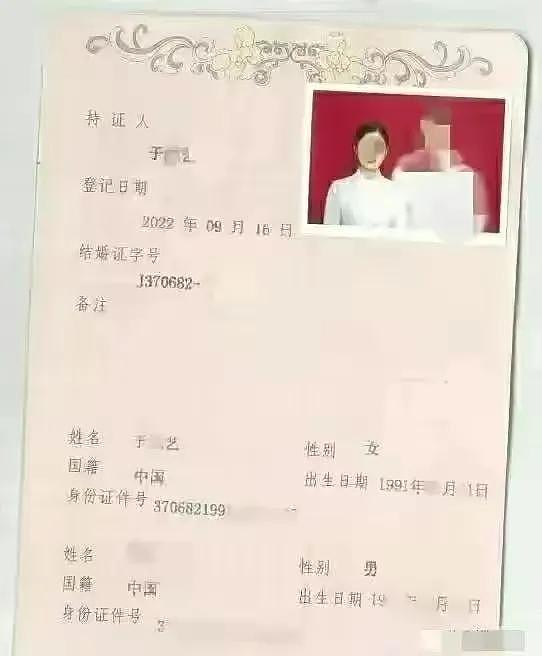 持证人
于 艺
登记日期
2022 年 09 月 16 日
结婚证字号
J370682-
备注
姓名 于 艺 性别 女
国籍 中国 出生日期 1991年 月 1日
身份证件号 370682199
姓名 性别 男
国籍 中国 出生日期 19 月 日
身份证件号 3